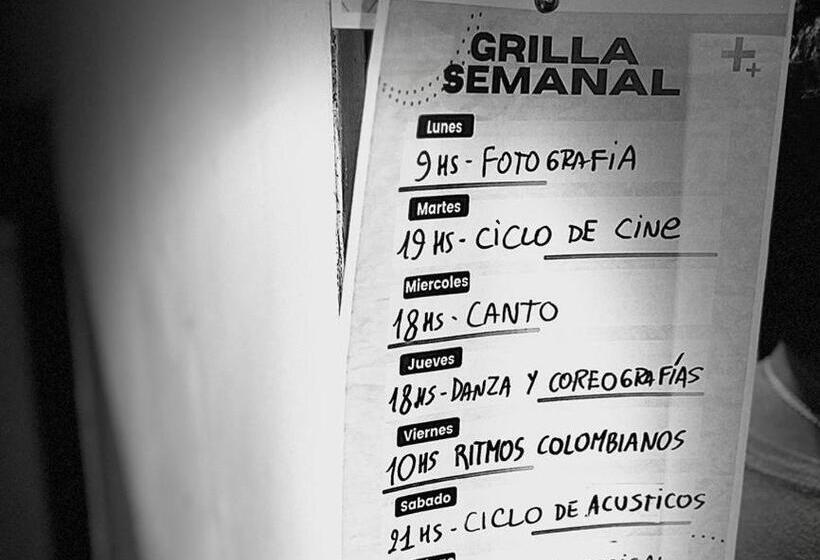 GRILLA
SEMANAL
Lunes
9HS - FOTOGRAFIA
Martes
19 HS - CICLO DE CINE
Miercoles
18HS - CANTO
Jueves
18HS - DANZA Y COREOGRAFÍAS
Viernes
10HS RITMOS COLOMBIANOS
Sabado
21 HS - CICLO DE ACUSTICOS